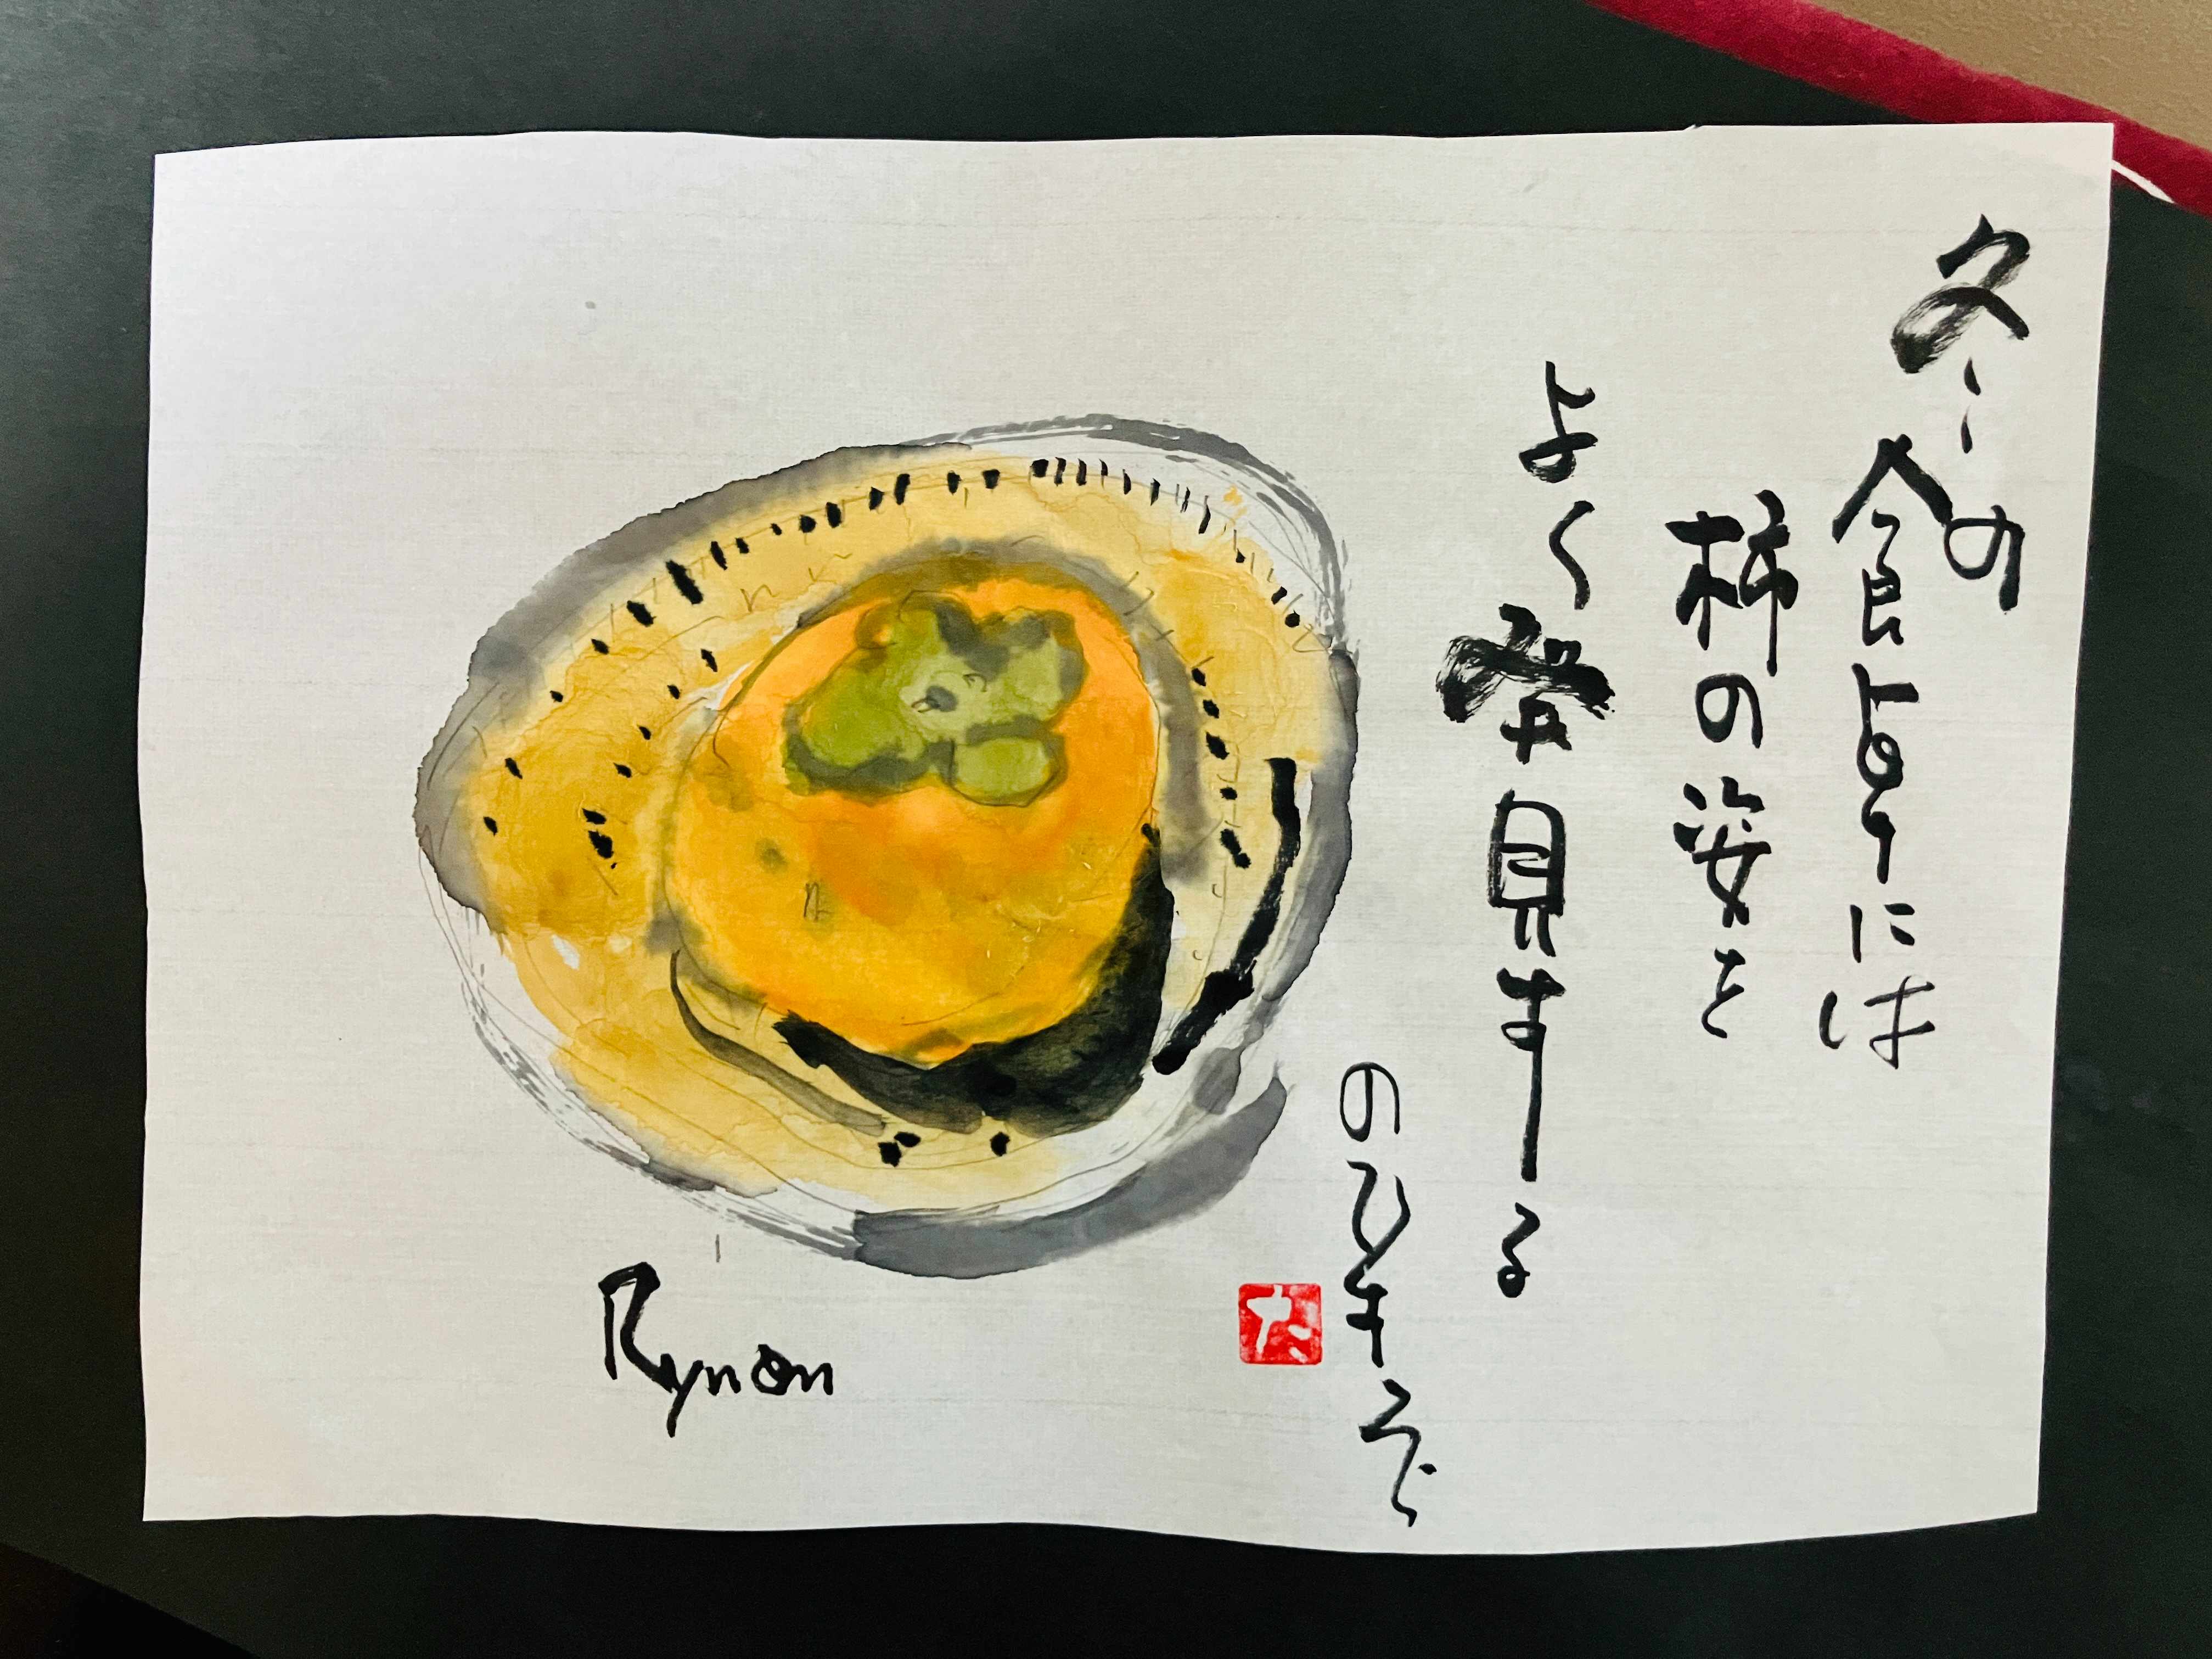 冬の
食卓には
柿の姿を
よく発見する
た
Rynon